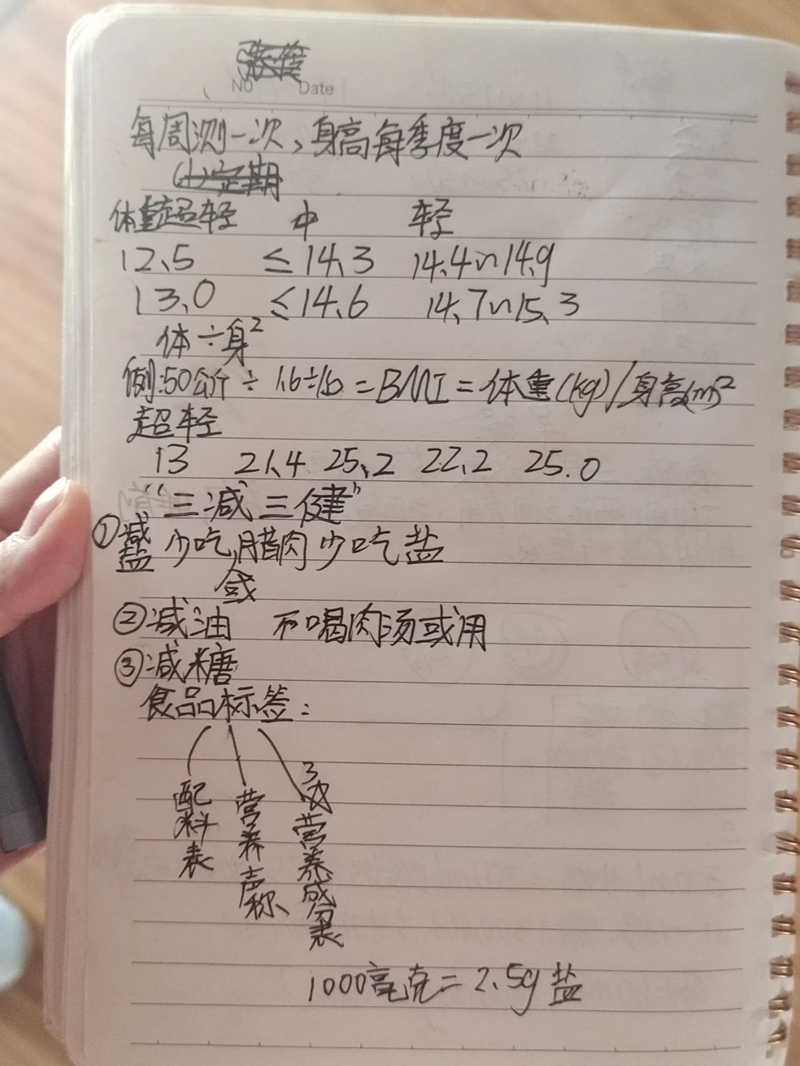 No Date
每周测一次,身高每季度一次
体重超轻 中 轻
12.5 ≤14.3 14.4~14.9
13.0 ≤14.6 14.7~15.3
体÷身²
例:50公斤÷1.6÷1.6=BMI=体重(kg)/身高(m)²
超轻
13 21.4 25.2 22.2 25.0
“三减三健”
①减盐 少吃腊肉少吃盐
②减油 不喝肉汤或用
③减糖
食品标签:
配料表
营养声称
营养成分表
1000毫克=2.5g盐